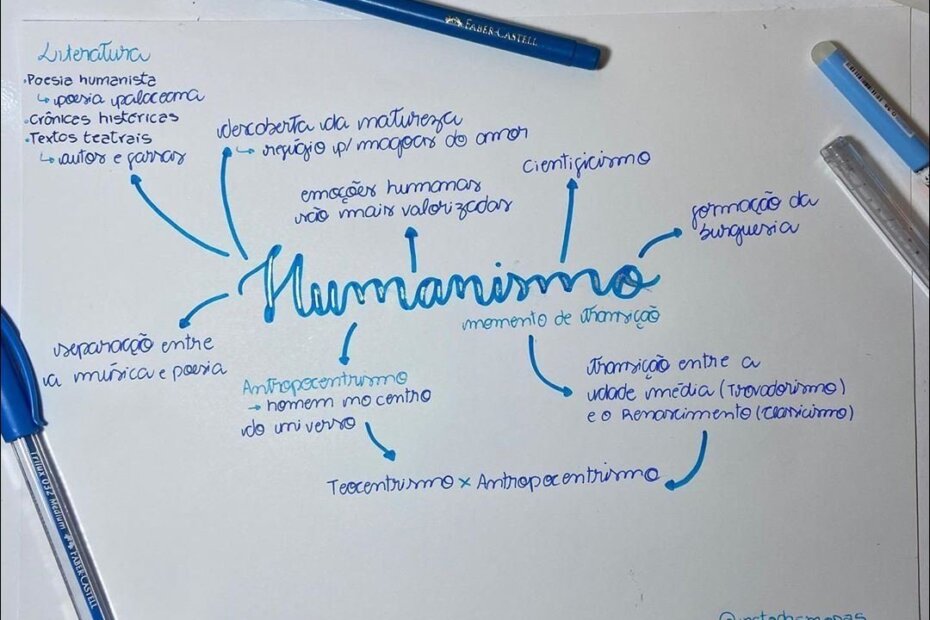 FABER-CASTELL
Literatura
•Poesia humanista
↳ poesia palaceana
•Crônicas históricas
•Textos teatrais
↳ autos e farsas
descoberta da natureza
↳ refúgio p/ mágoas do amor
emoções humanas
são mais valorizadas
cientificismo
formação da
burguesia
Humanismo
momento de transição
separação entre
a música e poesia
Antropocentrismo
→ homem no centro
do universo
transição entre a
idade média (Trovadorismo)
e o Renascimento (Classicismo)
Teocentrismo x Antropocentrismo
Trilux 032 Medium FABER-CASTELL